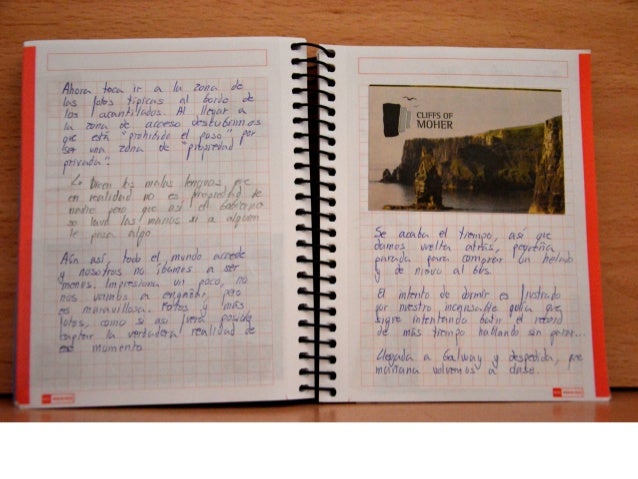 Ahora toca ir a la zona de
las fotos típicas al borde de
los acantilados. Al llegar a
la zona de acceso descubrimos
que está "prohibido el paso" por
ser una zona de "propiedad
privada".
dicen las malas lenguas que
en realidad no es propiedad de
nadie pero que así el gobierno
se lava las manos si a alguien
le pasa algo
Aún así, todo el mundo accede
y nosotros no íbamos a ser
menos. Impresiona un poco, no
nos vamos a engañar, pero
es maravilloso. Fotos y más
fotos, como si así fuera posible
captar la verdadera realidad de
ese momento.
CLIFFS OF
MOHER
Se acaba el tiempo, así que
damos vuelta atrás, pequeña
parada para comprar un helado
y de nuevo al bus.
El intento de dormir es frustrado
por nuestro incansable guía que
sigue intentando batir el récord
de más tiempo hablando sin parar...
Llegada a Galway y despedida, que
mañana volvemos a clase.